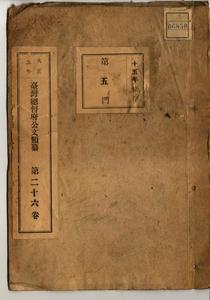 大正
五年
臺灣總督府公文類纂
第二十六卷
十五年
第五門